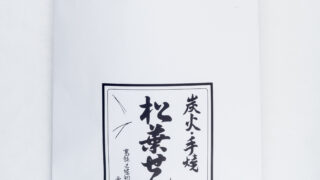 炭火・手焼
松葉せ